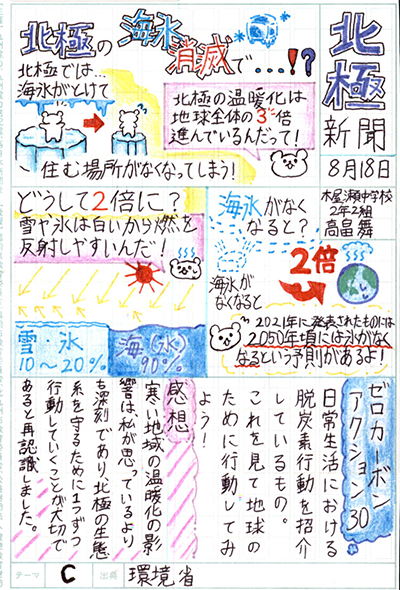 北極の海氷消滅で…!?
北極
新聞
8月18日
木屋瀬中学校
2年2組
高畠 舞
北極では…
海氷がとけて
北極の温暖化は
地球全体の3倍
進んでいるんだって!
住む場所がなくなってしまう!
どうして2倍に?
雪や氷は白いから熱を
反射しやすいんだ!
雪・氷
10~20%
海(水)
90%
海氷がなく
なると?
海氷が
なくなると
2倍
2021年に発表されたものには
2050年頃には氷がなく
なるという予測があるよ!
ゼロカーボン
アクション30
日常生活における
脱炭素行動を紹介
しているもの。
これを見て地球の
ために行動してみ
よう!
感想
寒い地域の温暖化の影
響は私が思っているより
も深刻であり、北極の生態
系を守るために1つずつ
行動していくことが大切で
あると再認識しました。
テーマ
C
出典
環境省